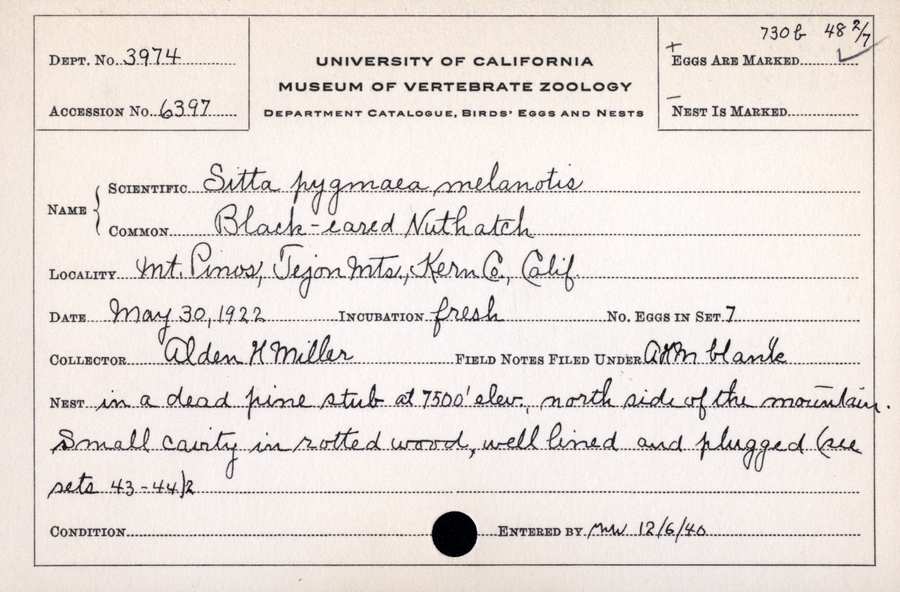 730b 48 2/7
Dept. No. 3974
UNIVERSITY OF CALIFORNIA
+
Eggs Are Marked ✓
MUSEUM OF VERTEBRATE ZOOLOGY
Accession No. 6397
Department Catalogue, Birds' Eggs and Nests
–
Nest Is Marked
Name { Scientific Sitta pygmaea melanotis
Common Black-eared Nuthatch
Locality Mt. Pinos, Tejon Mts., Kern Co., Calif.
Date May 30, 1922 Incubation fresh No. Eggs in Set 7
Collector Alden H Miller Field Notes Filed Under AHM blank
Nest in a dead pine stub at 7500' elev., north side of the mountain.
Small cavity in rotted wood, well lined and plugged (see
sets 43-44)2
Condition Entered by 12/6/40